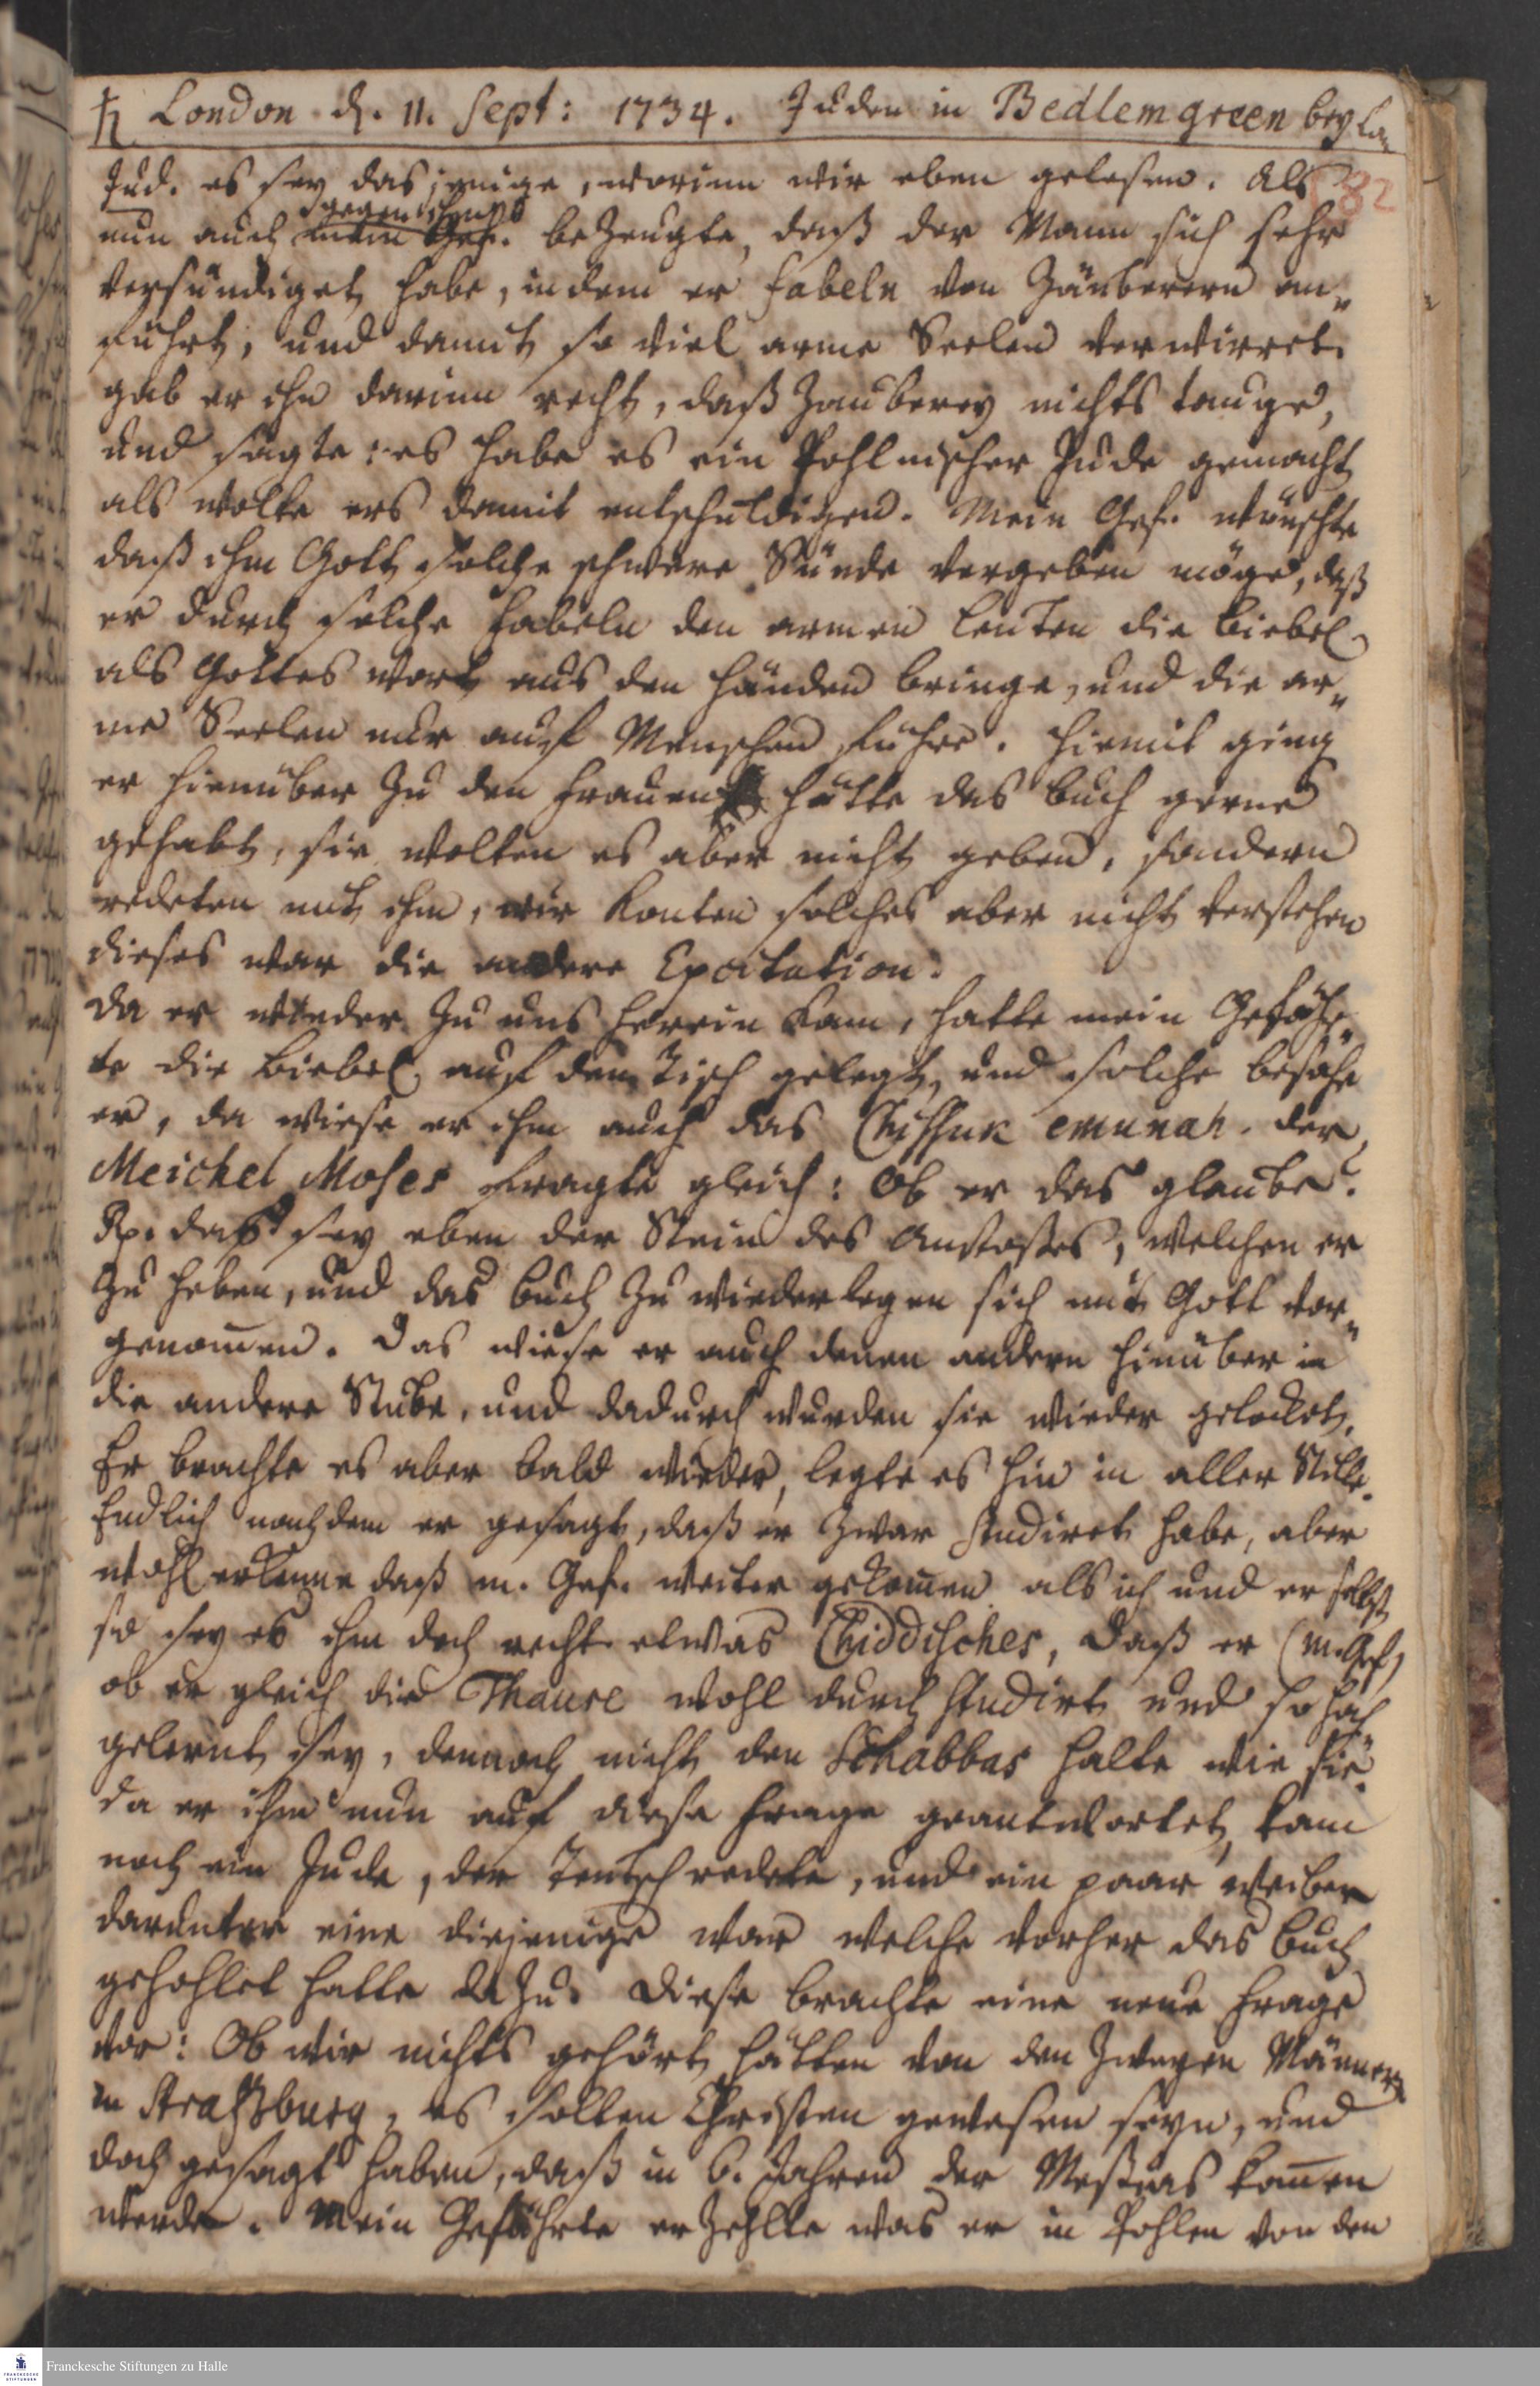 ♄ London d. 11. Sept: 1734. Juden in Bedlemgreen bey Lon
82
Jud. es sey dasjenige, worinn wir eben gelesen. Als
gegen ihn
nun auch mein Gef. bezeugte, daß der Mann sich sehr
versündiget habe, indem er Fabeln von Zäuberern an-
führt, und damit so viel arme Seelen verwirret.
gab er ihn darinn recht, daß Zauberey nichts tauge,
und sagte: es habe es ein Pohlnischer Jude gemacht
als wolte ers damit entschuldigen. Mein Gef. wünschte
daß ihm Gott solche schwere Sünde vergeben möge, daß
er durch solche Fabeln den armen Leuten die Biebel
als Gottes Wort aus den Händen bringe, und die ar-
me Seelen nur auf Menschen führe. Hiemit ging
er hienüber zu den Frauen hätte das Buch gerne
gehabt, sie wolten es aber nicht geben, sondern
redeten mit ihm, wir konten solches aber nicht verstehen
dieses war die andere
da er wieder zu uns herein kam, hatte mein Gefähr-
te die Biebel auf dem Tisch gelegt, und solche besahe
er, da wiese er ihm auch das Chissuk emunah. der
Meichel Moses fragte gleich: Ob er das glaube?
Rp. das sey eben der Stein des Anstoßes, welchen er
zu heben, und das Buch zu wiederlegen sich mit Gott vor-
genom̅en. Das wiese er auch denen andern hinüber in
die andere Stube, und dadurch wurden sie wieder gelocket,
Er brachte es aber bald wieder, legte es hin in aller Stille.
Endlich nachdem er gesagt, daß er zwar studiret habe, aber
wohl erkenne daß m. Gef. weiter gekom̅en als ich und er selbst
so sey es ihm doch recht etwas Chiddisches, daß er (m. Gef)
ob er gleich die Thaure wohl durch studirt und so hoch
gelernt sey, dennoch nicht den Schabbas halte wie sie.
da er ihm nun auf diese Frage geantwortet, kam
noch ein Jude, der Teutsch redete, und ein paar Weiber
darunter eine diejenige war welche vorher das Buch
gehohlet hatte dazu. Diese brachte eine neue Frage
vor: Ob wir nichts gehört hätten von den zweyen Männern
in Straßburg, es solten Christen gewesen seyn, und
doch gesagt haben, daß in 6. Jahren der Meßias kom̅en
werde. Mein Gefährte erzehlte was er in Pohlen von den
Franckesche Stiftungen zu Halle